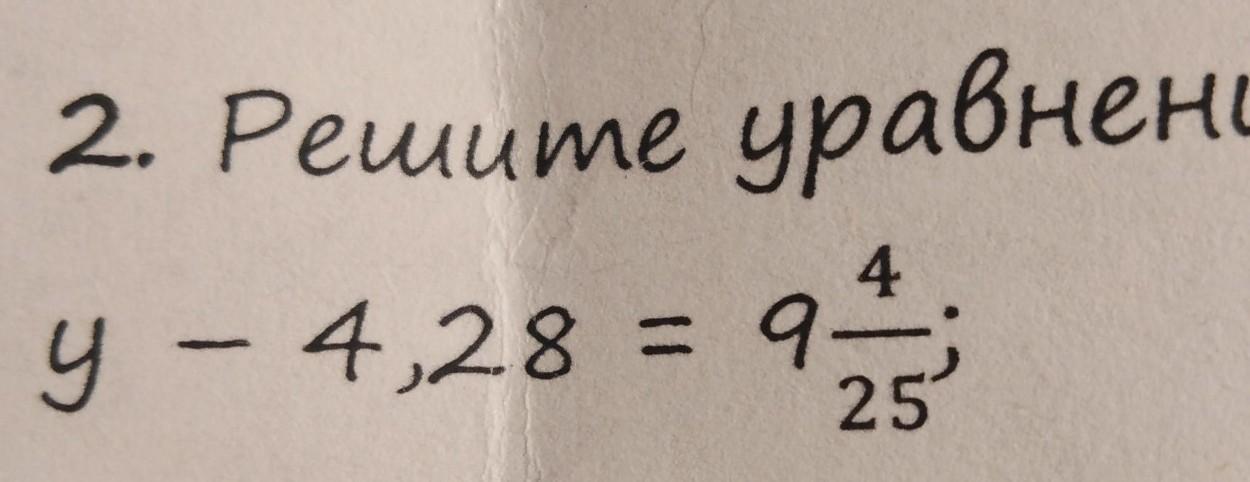 2. Решите уравнени
y − 4,28 = 9 4/25;